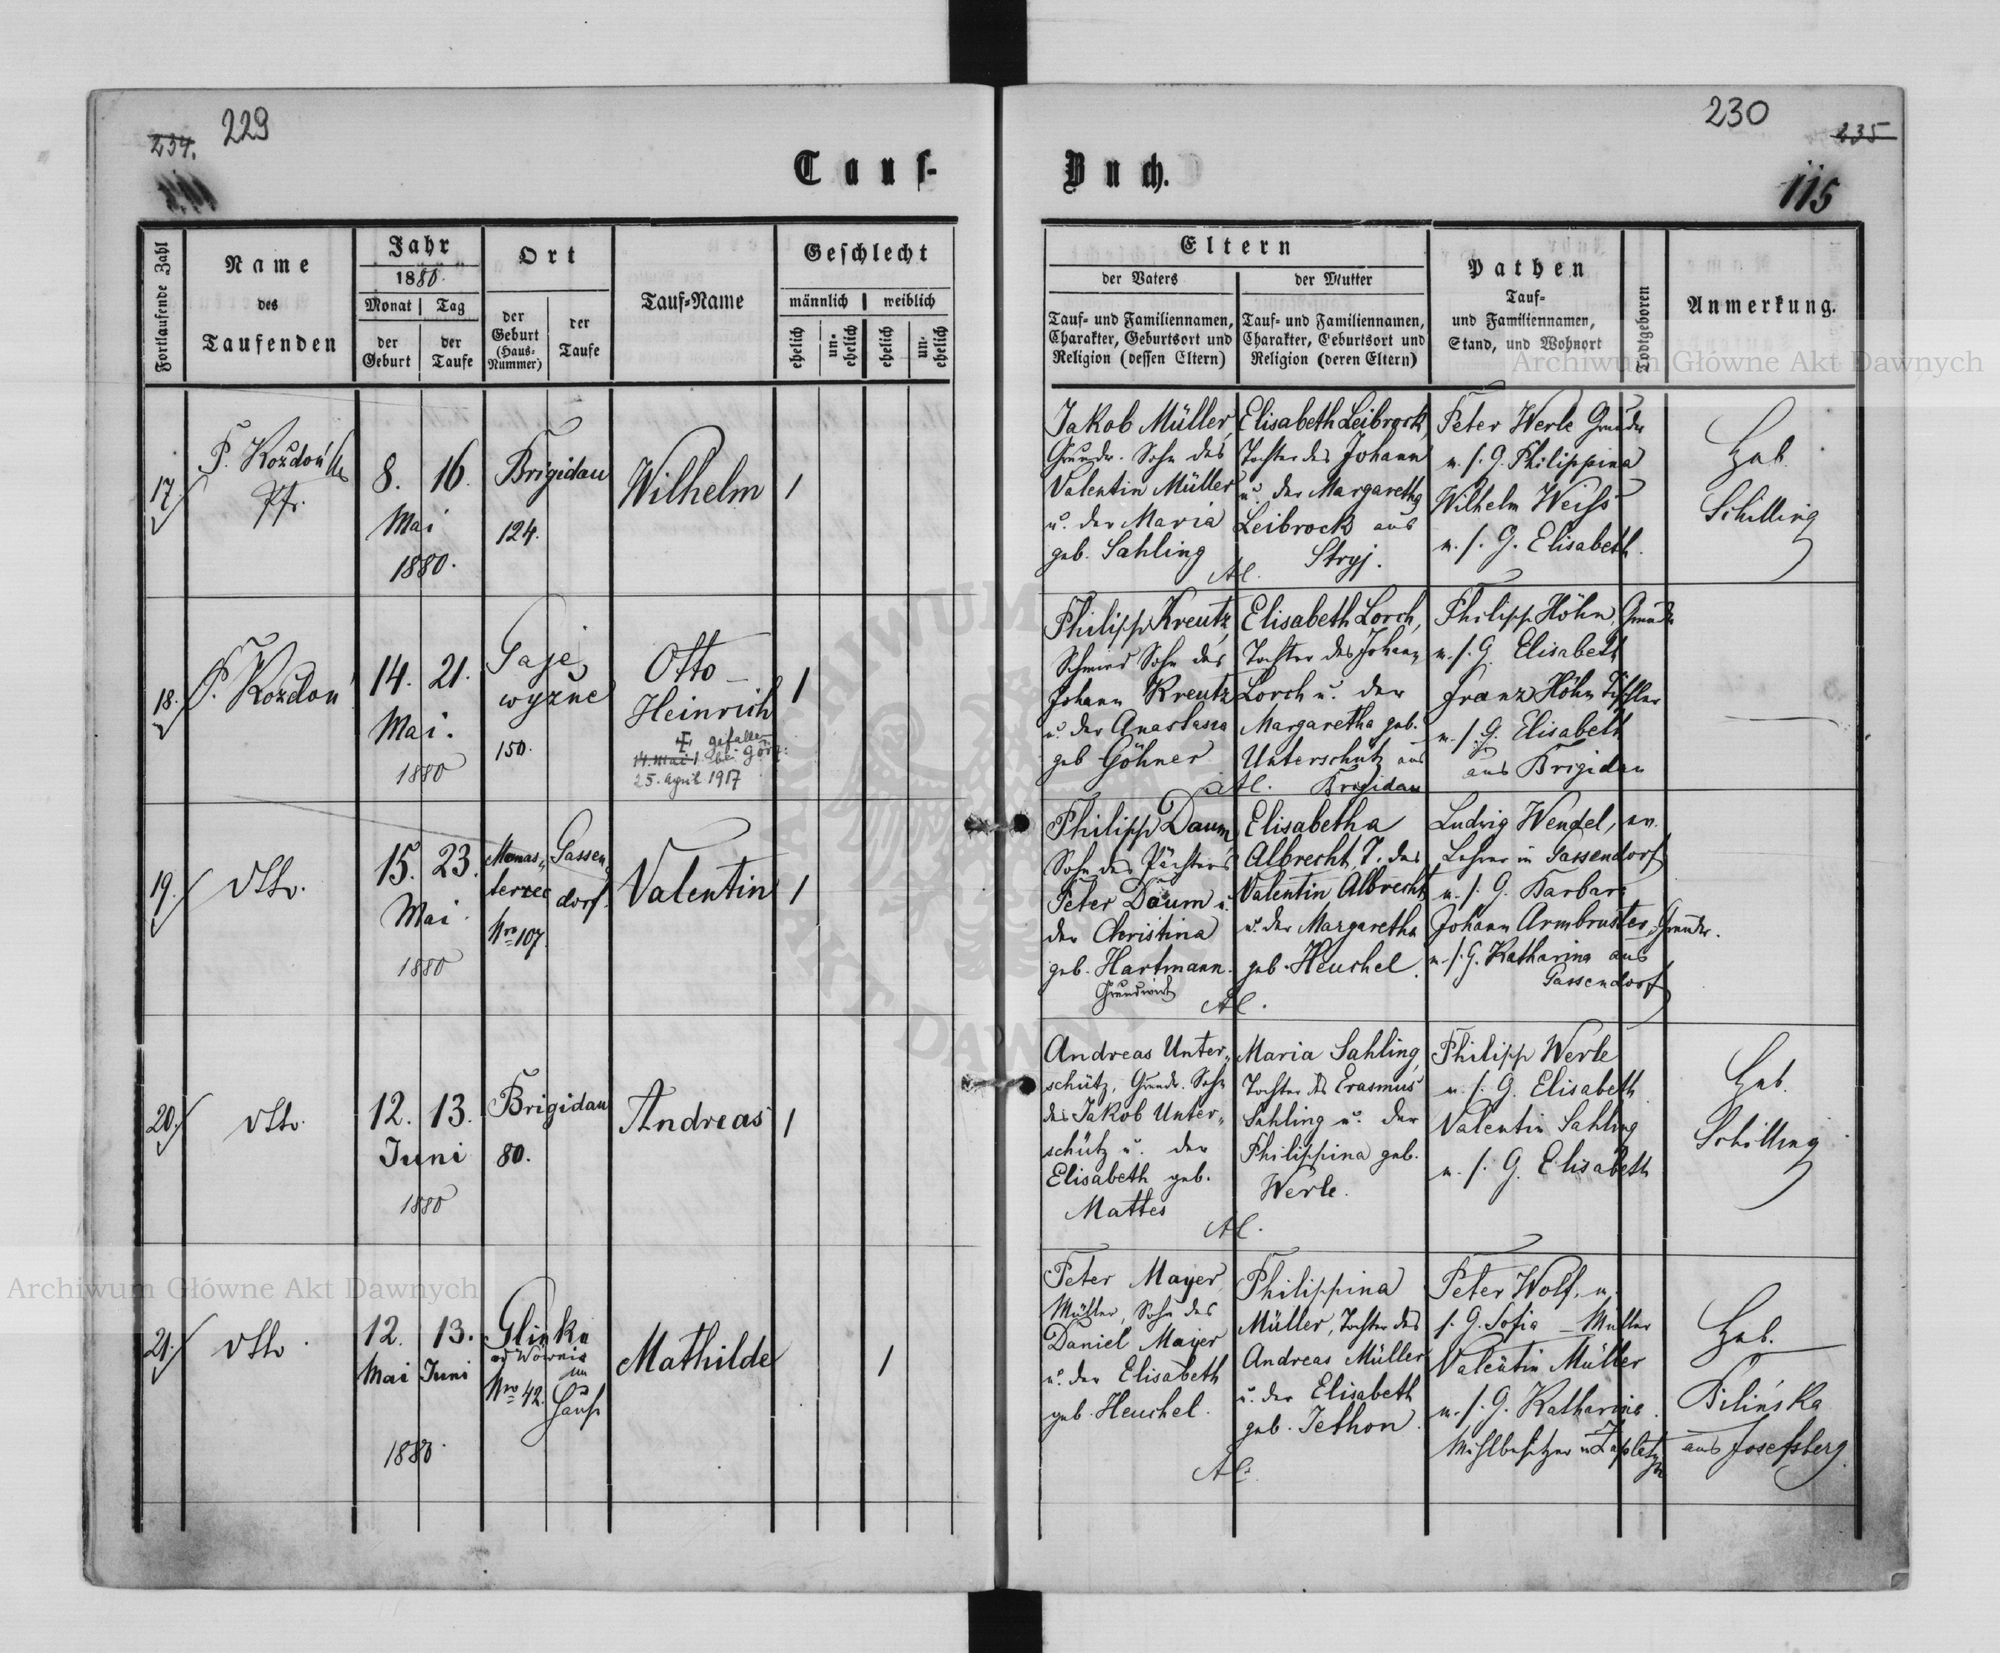 229
234.
230
235
115
Tauf-
Buch.
Fortlaufende Zahl
Name
des
Taufenden
Jahr
1880.
Monat
Tag
der
Geburt
der
Taufe
Ort
der
Geburt
(Haus-
Nummer)
der
Taufe
Tauf-Name
Geschlecht
männlich
weiblich
ehelich
un-
ehelich
ehelich
un-
ehelich
Eltern
der Vaters
der Mutter
Tauf- und Familiennamen,
Charakter, Geburtsort und
Religion (dessen Eltern)
Tauf- und Familiennamen,
Charakter, Geburtsort und
Religion (deren Eltern)
Pathen
Tauf-
und Familiennamen,
Stand, und Wohnort
Todtgeboren
Anmerkung.
17.
F. Kożdoń
Pfr.
8.
16.
Mai
1880.
Brigidau
124.
Wilhelm
1
Jakob Müller,
Grundr. Sohn des
Valentin Müller
u. der Maria
geb. Sahling
Al.
Elisabeth Leibrock,
Tochter des Johann
u. der Margaretha
Leibrock aus
Stryj.
Peter Werle Grundr
u. s. G. Philippina
Wilhelm Weiss
u. s. G. Elisabeth.
Heb.
Schilling
18.
F. Kożdoń
14.
21.
Mai.
1880
Gaje
wyżne
150.
Otto
Heinrich
‡ gefallen
14. Mai 1. bei Görz:
25. April 1917
1
Philipp Kreutz,
Schmied Sohn des
Johann Kreutz
u. der Anastasia
geb Göhner
Al.
Elisabeth Lorch,
Tochter des Johann
Lorch u. der
Margaretha geb.
Unterschütz aus
Brigidau
Philipp Höhn, Grundr
u. s. G. Elisabeth
Franz Höhn Tischler
u. s. G. Elisabeth
aus Brigidau
19.
dtto.
15.
23.
Mai.
1880
Monas-
terzec
Nro 107.
Gassen
dorf.
Valentin
1
Philipp Daum,
Sohn des Pächters
Peter Daum u.
der Christina
geb. Hartmann.
Grundwirt
Al.
Elisabetha
Albrecht, T. des
Valentin Albrecht
u. der Margaretha
geb. Heuchel.
Ludwig Wendel, ev.
Lehrer in Gassendorf
u. s. G. Barbara
Johann Armbruster, Grundr.
u. s. G. Katharina aus
Gassendorf
20.
dtto.
12.
13.
Juni
1880
Brigidau
80.
Andreas
1
Andreas Unter-
schütz, Grundr. Sohn
des Jakob Unter-
schütz u. der
Elisabeth geb.
Mattes
Al.
Maria Sahling,
Tochter des Erasmus
Sahling u. der
Philippina geb.
Werle.
Philipp Werle
u. s. G. Elisabeth
Valentin Sahling
u. s. G. Elisabeth
Heb.
Schilling
21.
dtto.
12.
13.
Mai
Juni
1880.
Glinka
Nro 42.
im
Hause
Mathilde
1
Peter Mayer,
Müller, Sohn des
Daniel Mayer
u. der Elisabeth
geb. Heuchel.
Al.
Philippina
Müller, Tochter des
Andreas Müller
u. der Elisabeth
geb. Jethon.
Peter Wolf. u.
s. G. Sofia – Müller
Valentin Müller
u. s. G. Katharina.
Heb.
Bilińska
aus Josefsberg.
Archiwum Główne Akt Dawnych
Archiwum Główne Akt Dawnych
ARCHIWUM
AKT DAWNYCH